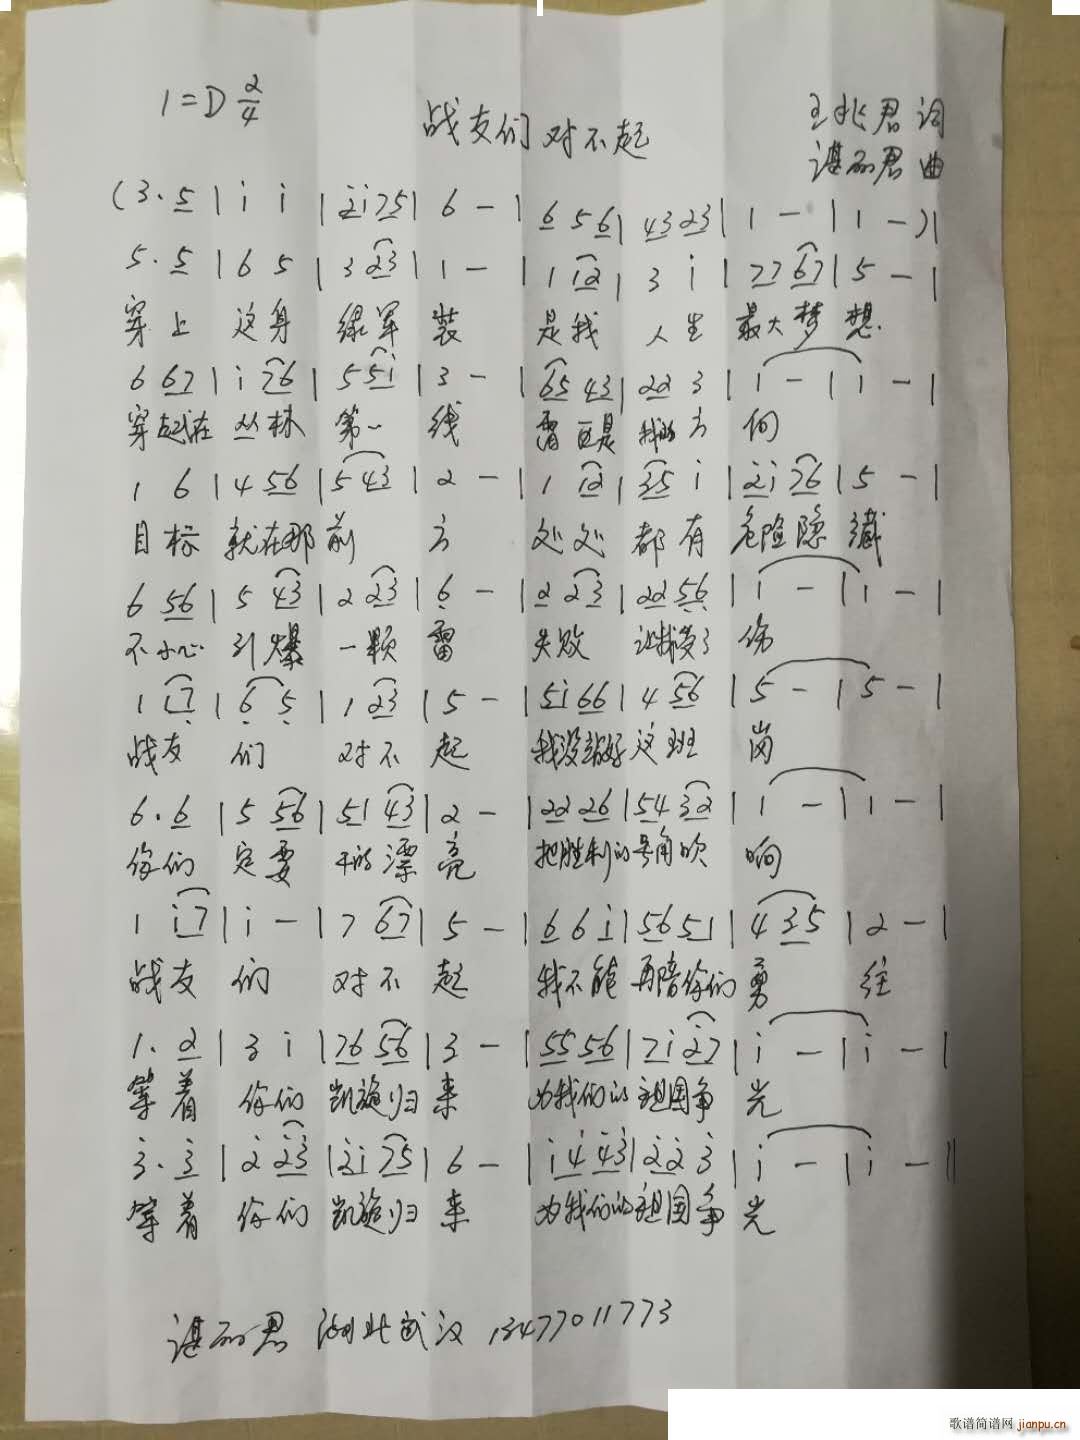 1=D 2/4
战友们 对不起
王兆君 词
谌丽君 曲
(3. 5 | i i | 2i75 | 6 - | 6 5 6 | 43 23 | 1 - | 1 -)|
5. 5 | 6 5 | 3 23 | 1 - | 1 12 | 3 i | 77 67 | 5 - |
穿上 这身 绿军 装 是我 人生 最大梦 想
6 67 | i 76 | 5 5i | 3 - | 65 43 | 22 3 | i - | i - |
穿越在 丛林 第一 线 雷区是 我的方 向
1 6 | 4 56 | 5 43 | 2 - | 1 12 | 35 i | 2i 76 | 5 - |
目标 就在那 前 方 处处 都有 危险隐 藏
6 56 | 5 43 | 2 23 | 6 - | 2 2 3 | 22 56 | 1 - | 1 - |
不小心 引爆 一颗 雷 失败 让我受了 伤
1 17 | 6 5 | 1 23 | 5 - | 5i 66 | 4 56 | 5 - | 5 - |
战友 们 对不 起 我没站好 这班 岗
6. 6 | 5 56 | 51 43 | 2 - | 22 26 | 54 32 | 1 - | 1 - |
你们 定要 干的漂 亮 把胜利的号角吹 响
1 i7 | i - | 7 67 | 5 - | 6 6 i | 56 51 | 4 35 | 2 - |
战友 们 对不 起 我不能 再陪你们 勇 往
1. 2 | 3 i | 76 56 | 3 - | 55 56 | 7i 27 | i - | i - |
等着 你们 凯旋归 来 为我们的祖国争 光
3. 3 | 2 23 | 2i 75 | 6 - | i 4 43 | 22 3 | i - | i - ||
等着 你们 凯旋归 来 为我们的祖国争 光
谌丽君 湖北武汉 13477011773
歌谱简谱网 jianpu.cn